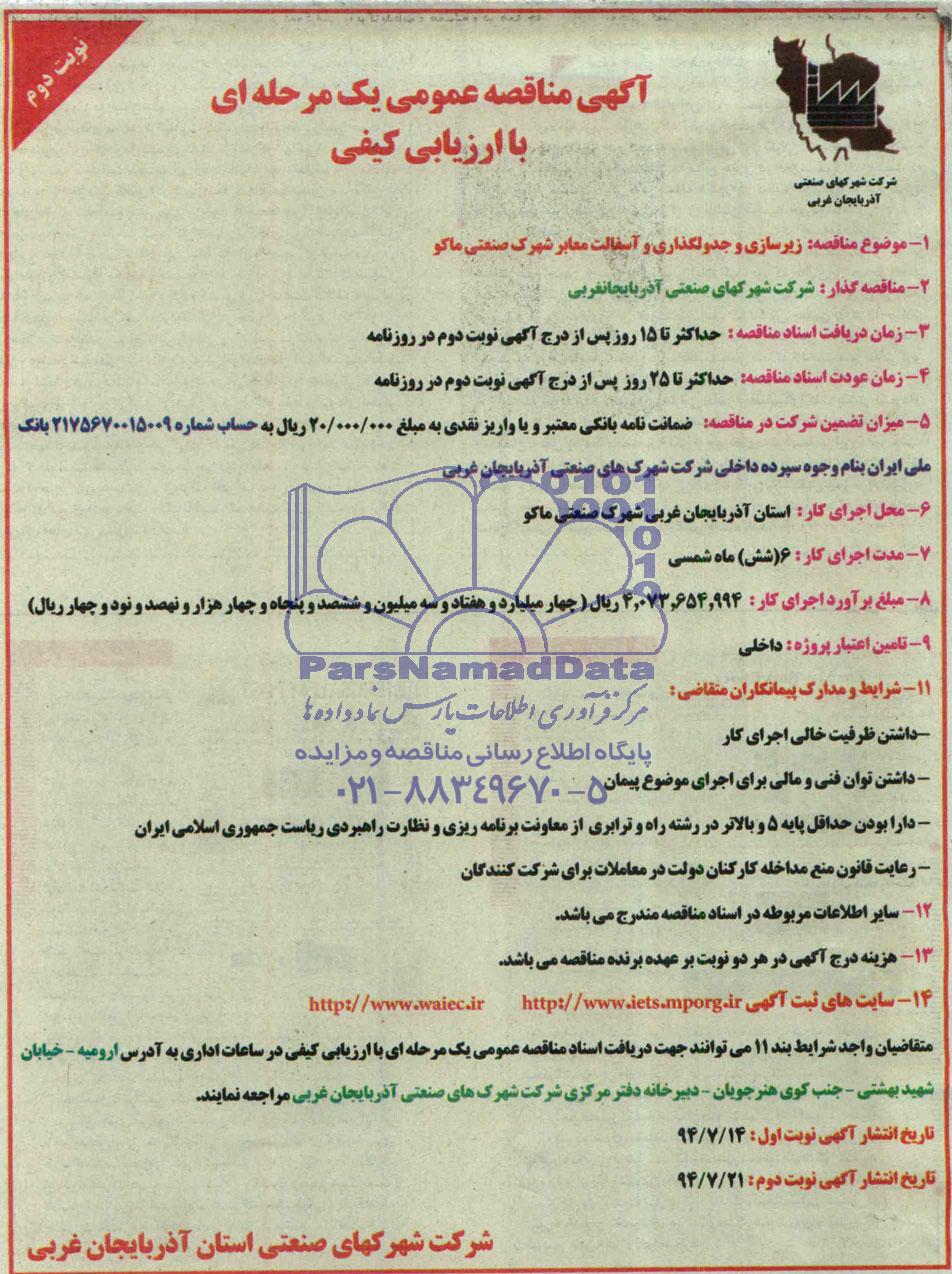 نوبت دوم
آگهی مناقصه عمومی یک مرحله ای
با ارزیابی کیفی
شرکت شهرکهای صنعتی
آذربایجان غربی
۱- موضوع مناقصه: زیرسازی و جدولگذاری و آسفالت معابر شهرک صنعتی ماکو
۲- مناقصه گذار: شرکت شهرکهای صنعتی آذربایجانغربی
۳- زمان دریافت اسناد مناقصه: حداکثر تا ۱۵ روز پس از درج آگهی نوبت دوم در روزنامه
۴- زمان عودت اسناد مناقصه: حداکثر تا ۲۵ روز پس از درج آگهی نوبت دوم در روزنامه
۵- میزان تضمین شرکت در مناقصه: ضمانت نامه بانکی معتبر و یا واریز نقدی به مبلغ ۲۰/۰۰۰/۰۰۰ ریال به حساب شماره ۲۱۷۵۶۷۰۰۱۵۰۰۹ بانک
ملی ایران بنام وجوه سپرده داخلی شرکت شهرک های صنعتی آذربایجان غربی
۶- محل اجرای کار: استان آذربایجان غربی شهرک صنعتی ماکو
۷- مدت اجرای کار: ۶(شش) ماه شمسی
۸- مبلغ برآورد اجرای کار: ۴,۰۷۳,۶۵۴,۹۹۴ ریال ( چهار میلیارد و هفتاد و سه میلیون و ششصد و پنجاه و چهار هزار و نهصد و نود و چهار ریال)
۹- تامین اعتبار پروژه: داخلی
۱۱- شرایط و مدارک پیمانکاران متقاضی:
-داشتن ظرفیت خالی اجرای کار
- داشتن توان فنی و مالی برای اجرای موضوع پیمان
- دارا بودن حداقل پایه ۵ و بالاتر در رشته راه و ترابری از معاونت برنامه ریزی و نظارت راهبردی ریاست جمهوری اسلامی ایران
- رعایت قانون منع مداخله کارکنان دولت در معاملات برای شرکت کنندگان
۱۲- سایر اطلاعات مربوطه در اسناد مناقصه مندرج می باشد.
۱۳- هزینه درج آگهی در هر دو نوبت بر عهده برنده مناقصه می باشد.
۱۴- سایت های ثبت آگهی http://www.iets.mporg.ir http://www.waiec.ir
متقاضیان واجد شرایط بند ۱۱ می توانند جهت دریافت اسناد مناقصه عمومی یک مرحله ای با ارزیابی کیفی در ساعات اداری به آدرس ارومیه - خیابان
شهید بهشتی - جنب کوی هنرجویان - دبیرخانه دفتر مرکزی شرکت شهرک های صنعتی آذربایجان غربی مراجعه نمایند.
تاریخ انتشار آگهی نوبت اول: ۹۴/۷/۱۴
تاریخ انتشار آگهی نوبت دوم: ۹۴/۷/۲۱
شرکت شهرکهای صنعتی استان آذربایجان غربی
ParsNamadData
مرکز فرآوری اطلاعات پارس نماد داده ها
پایگاه اطلاع رسانی مناقصه و مزایده
۰۲۱-۸۸۳۴۹۶۷۰-۵